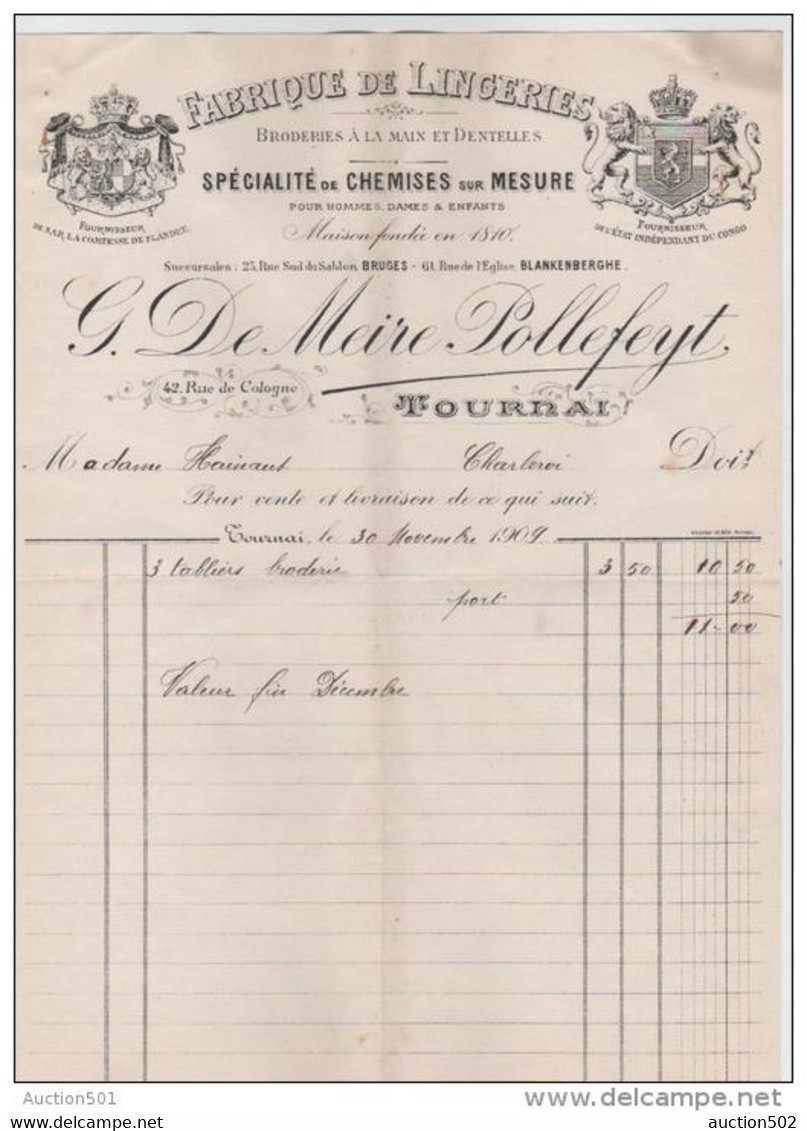 FABRIQUE DE LINGERIES
BRODERIES À LA MAIN ET DENTELLES
SPÉCIALITÉ DE CHEMISES SUR MESURE
POUR HOMMES, DAMES & ENFANTS
Maison fondée en 1810.
FOURNISSEUR
DE S.A.R. LA COMTESSE DE FLANDRE.
FOURNISSEUR
DE L'ÉTAT INDÉPENDANT DU CONGO
Succursales : 25, Rue Sud du Sablon, BRUGES - 61, Rue de l'Eglise, BLANKENBERGHE.
G. De Meire Pollefeyt.
42, Rue de Cologne
TOURNAI
Madame Hainaut Charleroi Doit
Pour vente et livraison de ce qui suit.
Tournai, le 30 Novembre 1909
3 tabliers broderie 3 50 10 50
port 50
11-00
Valeur fin Décembre
Auction501
delcampe.net
Auction501
auction502